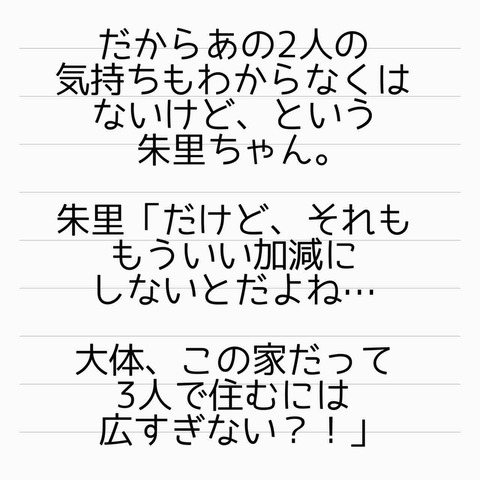 だからあの2人の
気持ちもわからなくは
ないけど、という
朱里ちゃん。
朱里「だけど、それも
もういい加減に
しないとだよね…
大体、この家だって
3人で住むには
広すぎない？！」